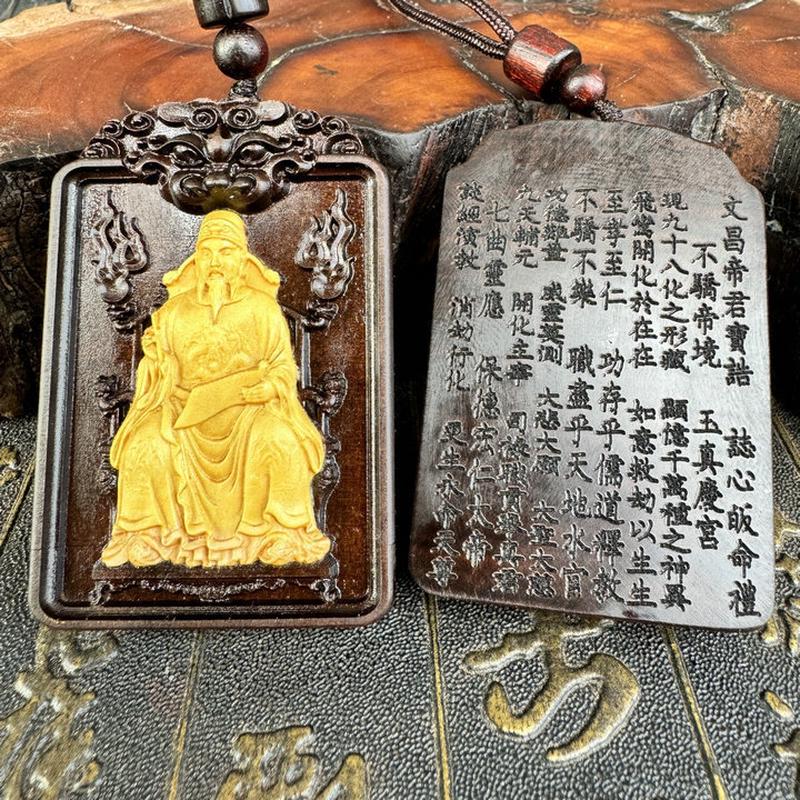 文昌帝君寶誥 誌心皈命禮
不驕帝境 玉真慶宮
現九十八化之形藏 顯億千萬種之神異
飛鸞開化於在在 如意救劫以生生
至孝至仁 功存乎儒道釋教
不驕不樂 職盡乎天地水官
功德難量 威靈莫測 大悲大願 大聖大慈
九天輔元 開化主宰 司祿職貢舉真君
七曲靈應 保德宏仁大帝
談經演教 消劫行化 更生永命天尊